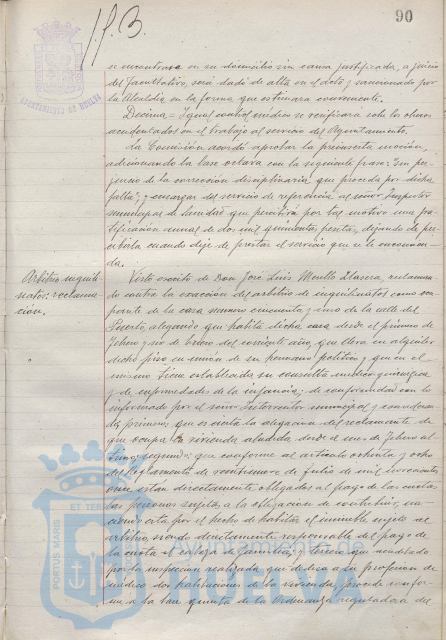 90
AYUNTAMIENTO DE HUELVA
se encontrara en su domicilio sin causa justificada, a juicio
del facultativo, será dado de alta en el acto y sancionado por
la Alcaldía en la forma que estimara conveniente.
Décima = Igual control médico se verificará sobre los obreros
accidentados en el trabajo al servicio del Ayuntamiento.
La Comisión acordó aprobar la preinserta moción,
adicionando la base octava con la siguiente frase: "sin per-
juicio de la corrección disciplinaria que proceda por dicha
falta", y encargar del servicio de referencia al señor Inspector
municipal de Sanidad que percibirá por tal motivo una gra-
tificación anual de dos mil quinientas pesetas, dejando de per-
cibirla cuando deje de prestar el servicio que se le encomien-
da.
Arbitrio inquili-
natos: reclama-
ción.
Visto escrito de Don José Luis reclaman-
do contra la exacción del arbitrio de inquilinatos como ocu-
pante de la casa número cincuenta y uno de la calle del
Puerto, alegando que habita dicha casa desde el primero de
febrero y no de enero del corriente año, que lleva en alquiler
dicho piso en unión de su hermano político y que en el
mismo tiene establecida su consulta médico-quirúrgica
y de enfermedades de la infancia; de conformidad con lo
informado por el señor Interventor municipal y consideran-
do, primero: que es cierta la alegación del reclamante de
que ocupa la vivienda aludida desde el mes de febrero al
segundo: que conforme al artículo ochenta y ocho
del Reglamento de veintinueve de Junio de mil novecientos
once están directamente obligados al pago de las cuotas
las personas sujetas a la obligación de contribuir, na-
ciendo esta por el hecho de habitar el inmueble sujeto al
arbitrio, siendo directamente responsable del pago de
la cuota el cabeza de familia; y tercero: que acreditado
por la inspección realizada que dedica a su profesión de
médico dos habitaciones de la vivienda, procede confor-
me a la base quinta de la Ordenanza reguladora del
PORTUS MARIS ET TERRAE
AYUNTAMIENTO DE
HUELVA